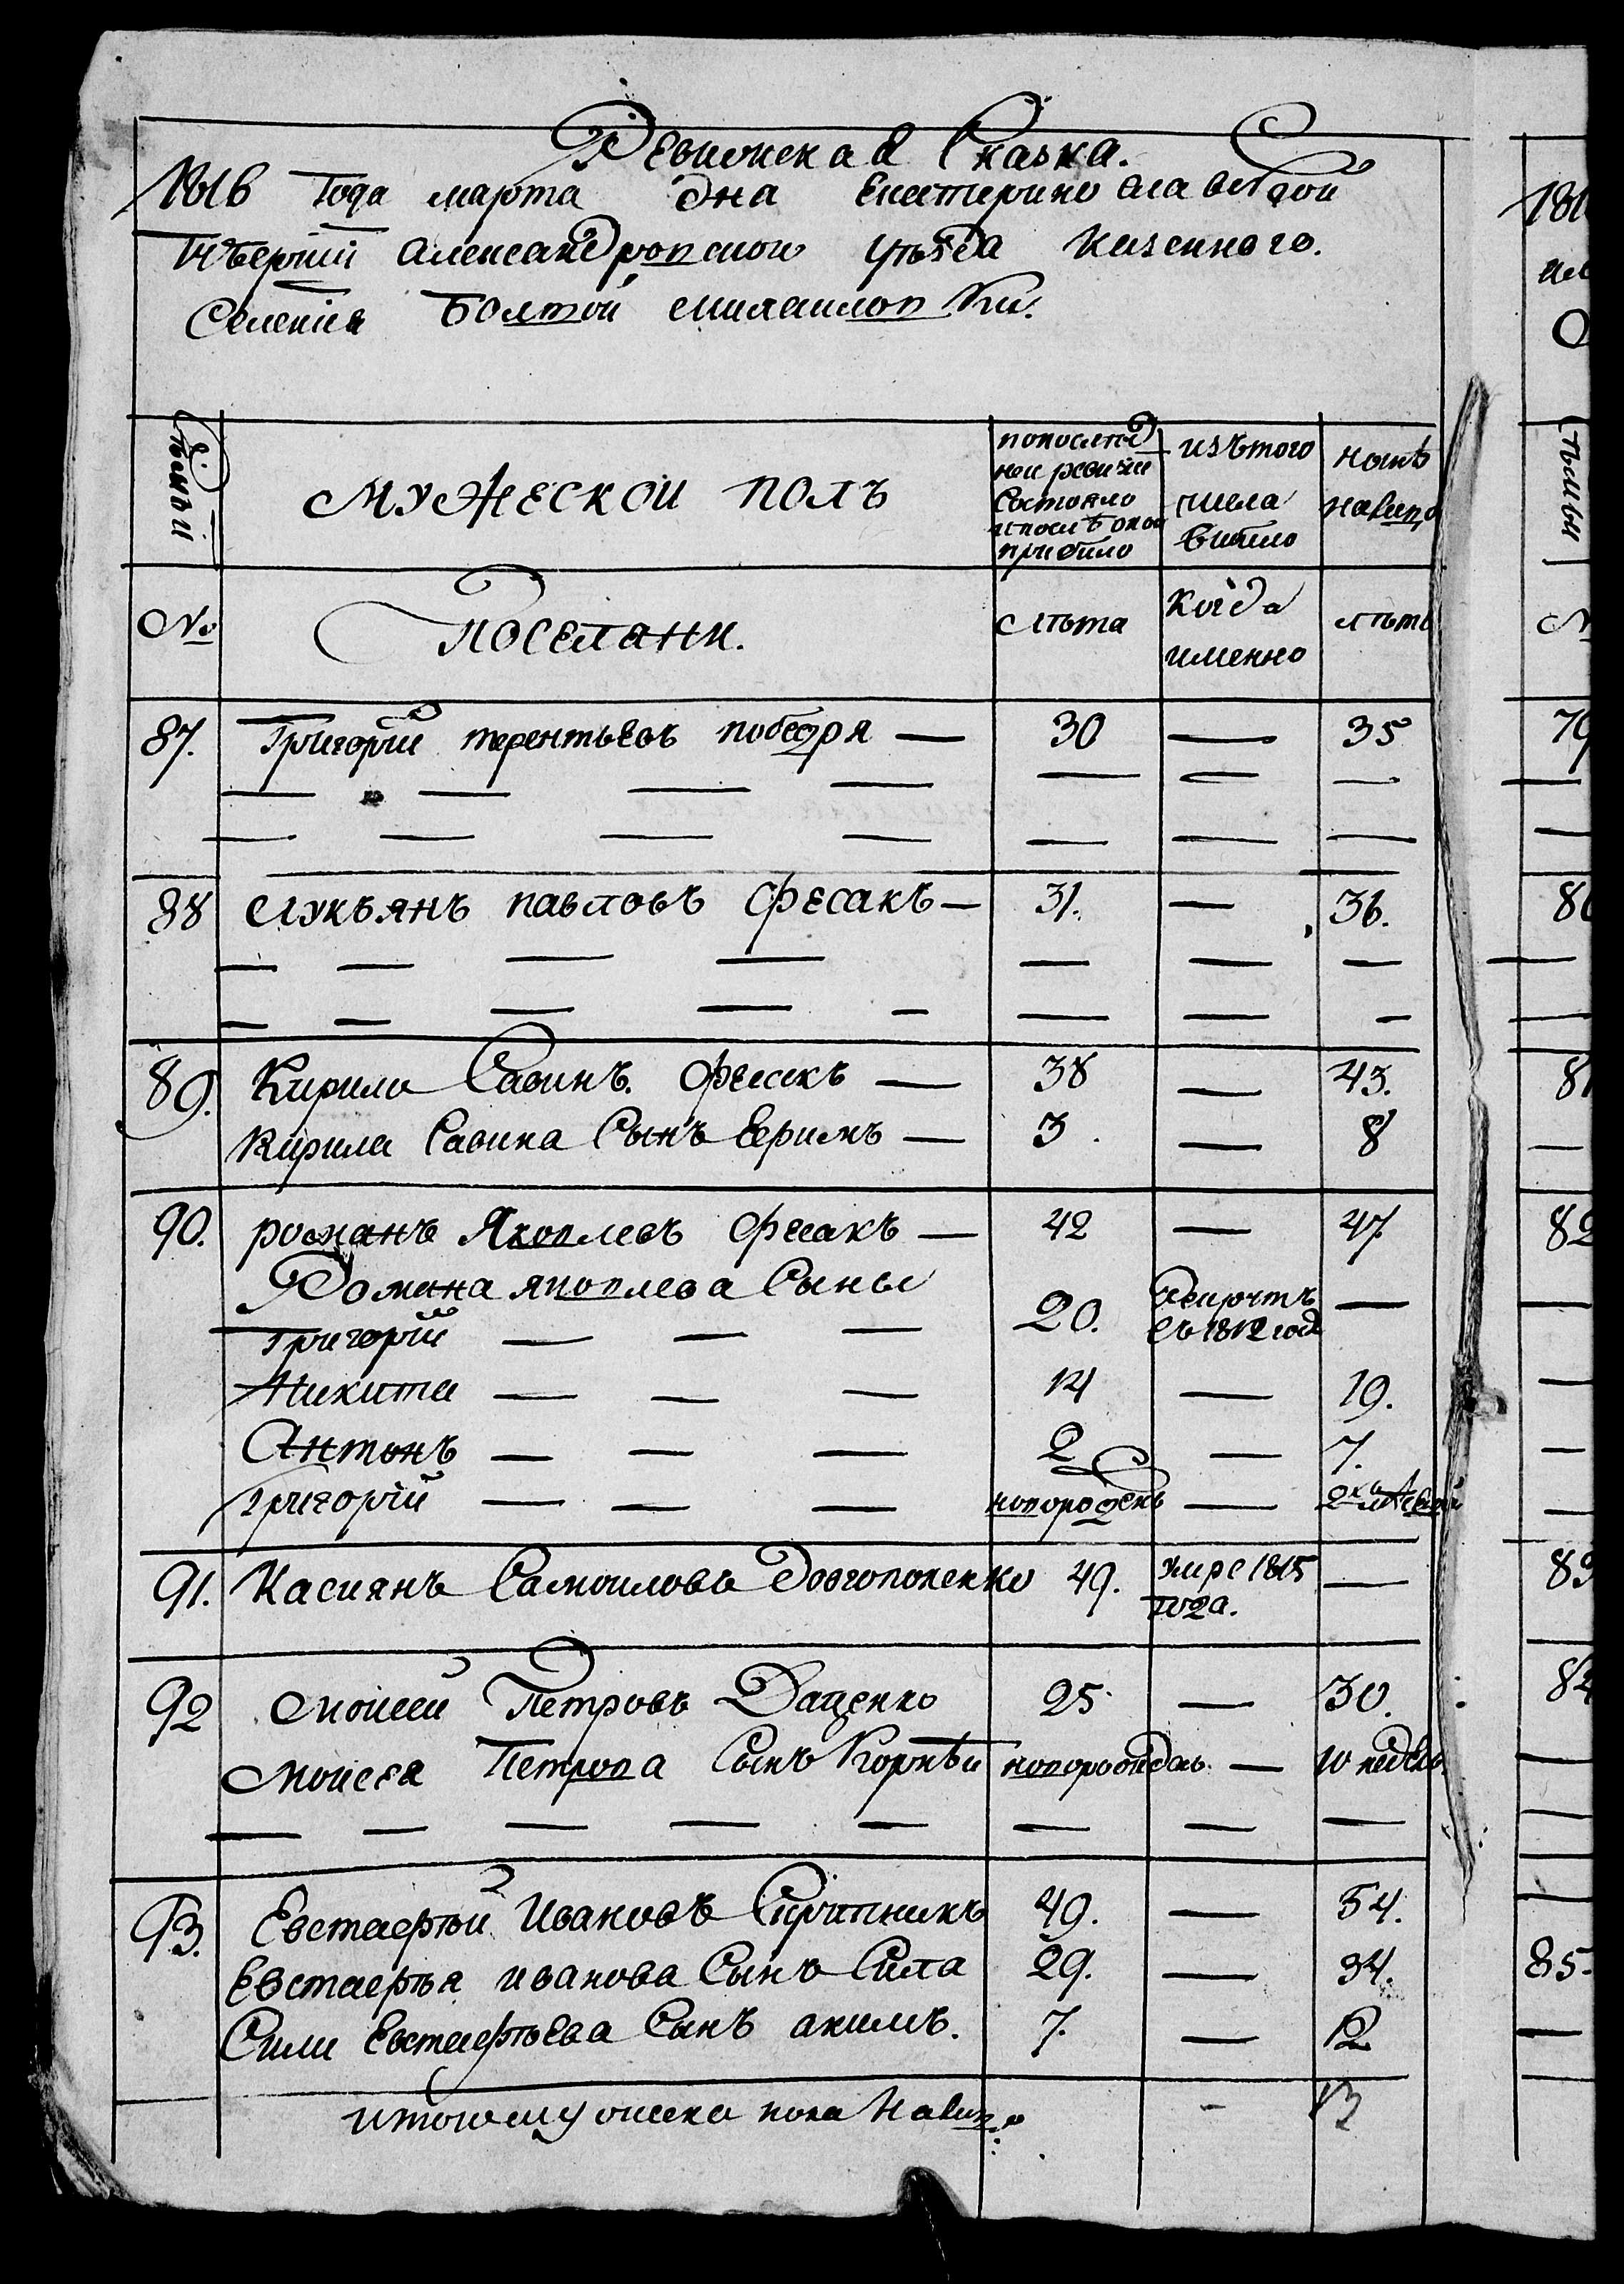 Ревионская Сказка.
1816 года марта дна Екатерино славской
Губернии Александровской уѣзда казенного.
Селения Болтой михаиловки.
Семьи
МУЖЕСКОИ ПОЛЪ
попослѣд
ней ревизии
состояло
и послѣ оной
прибило
изътого
числа
выбило
нынѣ
налицо
№
Поселяни.
лѣта
когда
именно
лѣта
87. Григорий терентьевъ победря — 30 — 35
88 Лукъянъ павловъ фесакъ — 31. — 36.
89. Кирило Савинъ. фесекъ — 38 — 43.
Кирила Савина Сынъ Ефримъ — 3. — 8
90. романъ Яковлевъ фесакъ — 42 — 47.
Романа яковлева Сыны
Григорий — — — 20. рекрутъ въ 1812 год —
Никита — — — 14 — 19.
Антонъ — — — 2 — 7.
Григорий — — — новорожденъ —
91. Касиянъ Самоиловъ Довгопоненко 49. умре 1815 —
года.
92 Моисеи Петровъ Даценко 25 — 30.
Моисея Петрова Сынъ Корнѣи новорожденъ. — 10 недель
93. Евстаефѣи Ивановъ Скрипникъ 49. — 54.
Евстаефѣя иванова Сынъ Сила 29. — 34.
Сили Евстаефьева Сынъ акимъ. 7. — 12
итого мужеска пола налицо - 13
181
79
80
81
82
83
84
85.